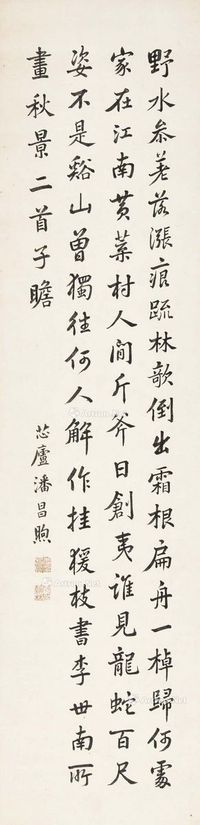 野水叅差落漲痕踈林欹倒出霜根扁舟一棹歸何處
家在江南黄葉村人間斤斧日創夷誰見龍蛇百尺
姿不是谿山曾獨往何人解作挂猨枝書李世南所
畫秋景二首子瞻
芯廬潘昌煦